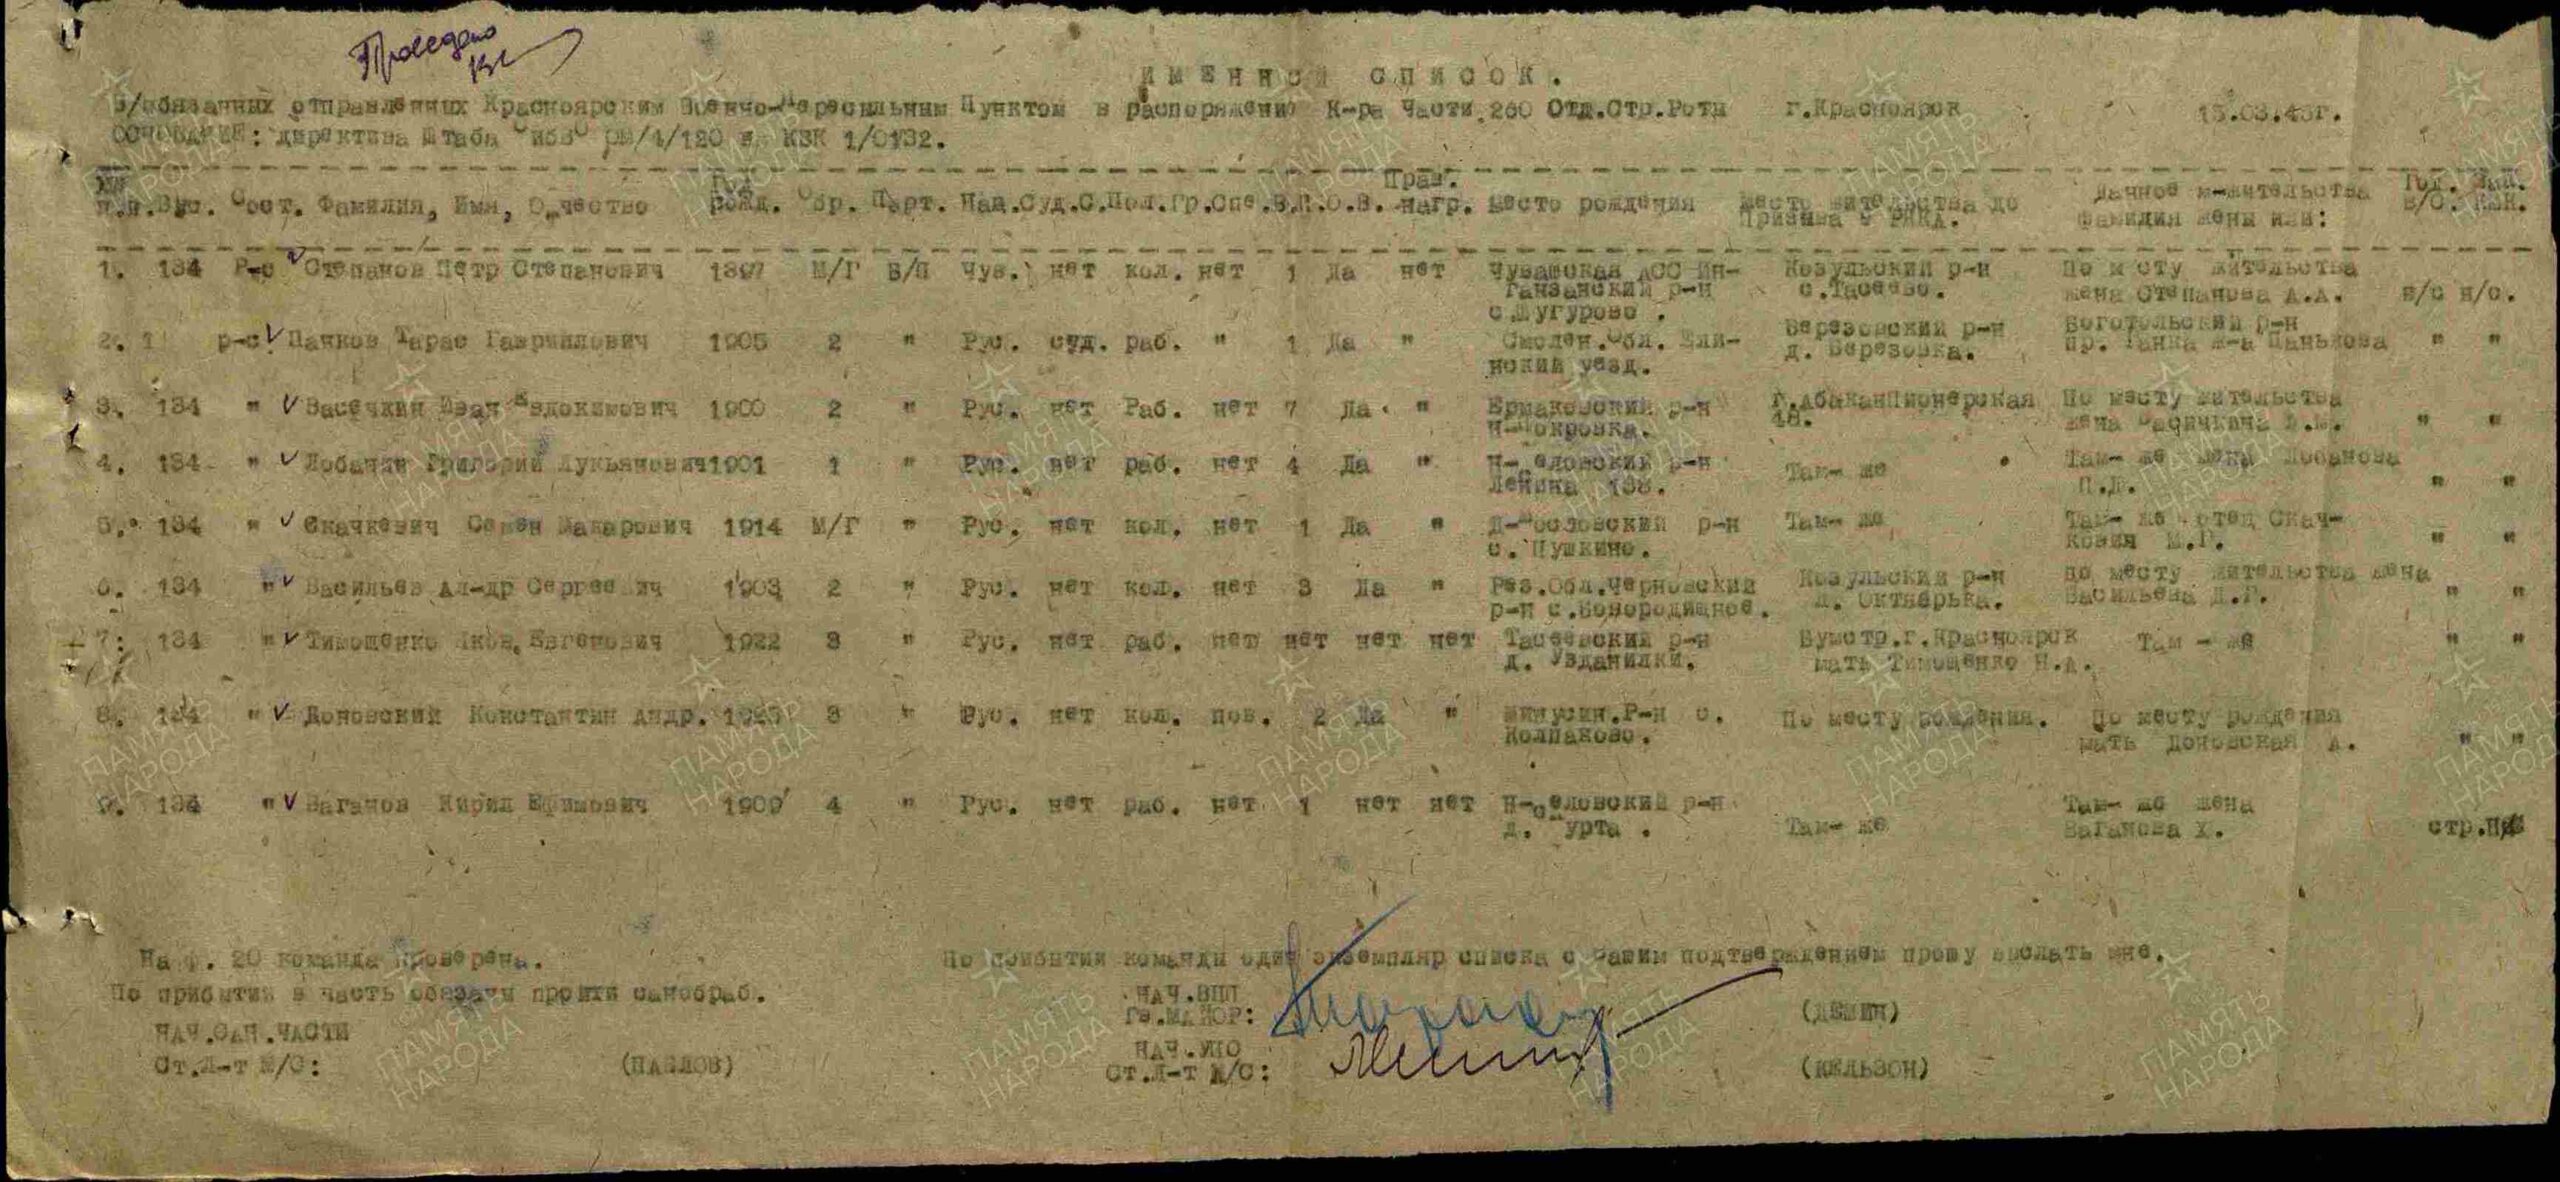 Проведено
ИМЕННОЙ СПИСОК.
В/обязанных отправленных Красноярским Военно-Пересыльным Пунктом в распоряжение К-ра Части 260 Отд.Стр.Роты г.Красноярск 13.03.43г.
ОСНОВАНИЕ: директива Штаба СибВО ОМ/4/120 и КВК 1/0132.
№№ Год Прав. Год. Вып.
п.п. Вус. Сост. Фамилия, Имя, Отчество рожд. Обр. Парт. Нац. Суд. С.Пол. Гр. Спе. В.П.О.В. нагр. Место рождения Место жительства до Призыва в РККА. Данное м-жительства фамилия жены или: в/с.
1. 134 Р-с Степанов Петр Степанович 1897 М/Г Б/П Чув. нет кол. нет 1 Да нет Чувашская АСС Ин- Козульский р-н По м сту жительства
ганзанский р-н с.Тасеево. жена Степанова А.А. н/с н/с.
с.Шугурово .
2. 1 р-с Панков Тарас Гавриилович 1905 2 " Рус. суд. раб. " 1 Да " Смолен.Обл. Ели- Березовский р-н Боготольский р-н
нский уезд. д. Березовка. пр. Ганка ж-а Панькова " "
3. 134 " Васечкин Иван Евдокимович 1900 2 " Рус. нет Раб. нет 7 Да " Ермаковский р-н г.АбаканПионерская По месту жительства
Н-Покровка. 48. жена Васичкина " "
4. 134 " Лобанин Григорий Лукьянович 1901 1 " Рус. нет раб. нет 4 Да " Н-Селовский р-н Там- же Там- же жена Лобанова
Ленина 138. П.Д. " "
5. 134 " Скачкевич Семен Макарович 1914 М/Г " Рус. нет кол. нет 1 Да " р-н Там- же Там- же отец Скач-
с. Пушкино. ковия М.Г. " "
6. 134 " Васильев Ал-др Сергеевич 1903 2 " Рус. нет кол. нет 3 Да " Ряз.Обл.Черновский Козульский р-н По месту жительства жена
р-н с.Новородищное. д. Октябрька. Васильева Д.Г. " "
7. 134 " Тимошенко Яков Евгенович 1922 3 " Рус. нет раб. нет нет нет нет Тасеевский р-н Бумстр.г.Красноярск Там - же " "
д. Узданилки. мать Тимошенко Н.А.
8. 134 " Доновский Константин Андр. 1925 3 " Рус. нет кол. пов. 2 Да " Минусин.Р-н с. По месту рождения. По месту рождения
Колпаково. мать Доновская А. " "
9. 134 " Ваганов Кирил Ефимович 1909 4 " Рус. нет раб. нет 1 нет нет Н-Селовский р-н Там- же жена
д. Курта . Там- же Ваганова Х. стр.
На ф. 20 команда проверена. По прибытии команды один экземпляр списка с Вашим подтверждением прошу выслать мне.
По прибытии в часть обязаны пройти санобраб. НАЧ.ВПП
Гв.МАЙОР: (ДЕМИН)
НАЧ.САН.ЧАСТИ НАЧ.УЧО
Ст.Л-т М/С: (ПАВЛОВ) Ст.Л-т М/С: (КЕЛЬЗОН)